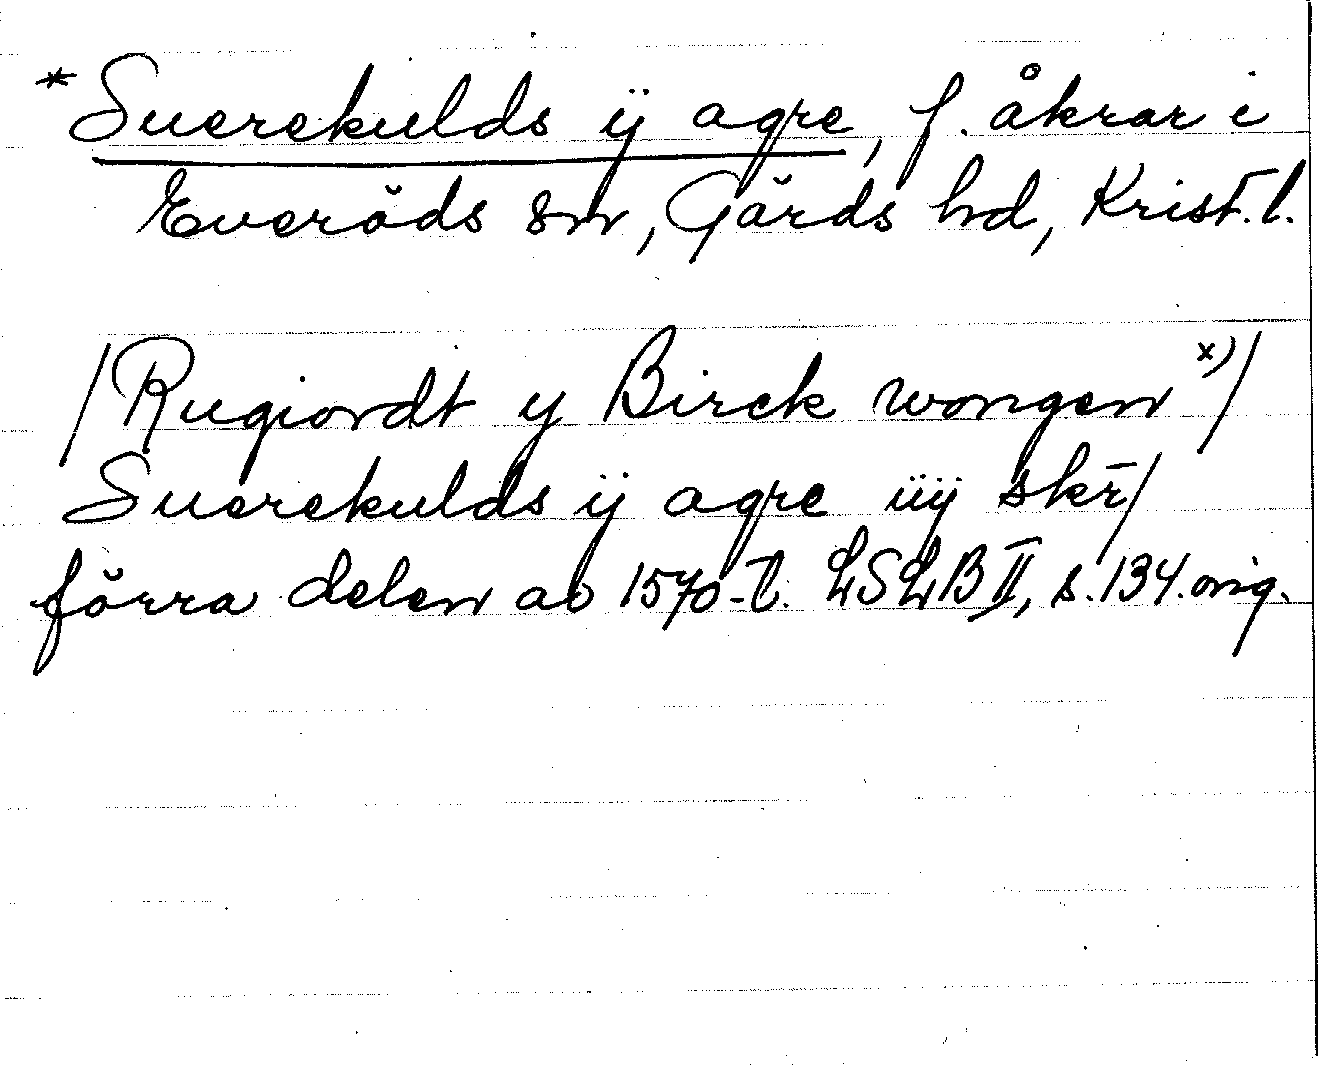 *Suerekulds ij agre, f. åkrar i
Everöds sn, Gärds hd, Krist. l.
/Rugiordt y Birck wongen x)/
Suerekulds ij agre iiij skr̄/
förra delen av 1570-t. LSLB II, s. 134. orig.